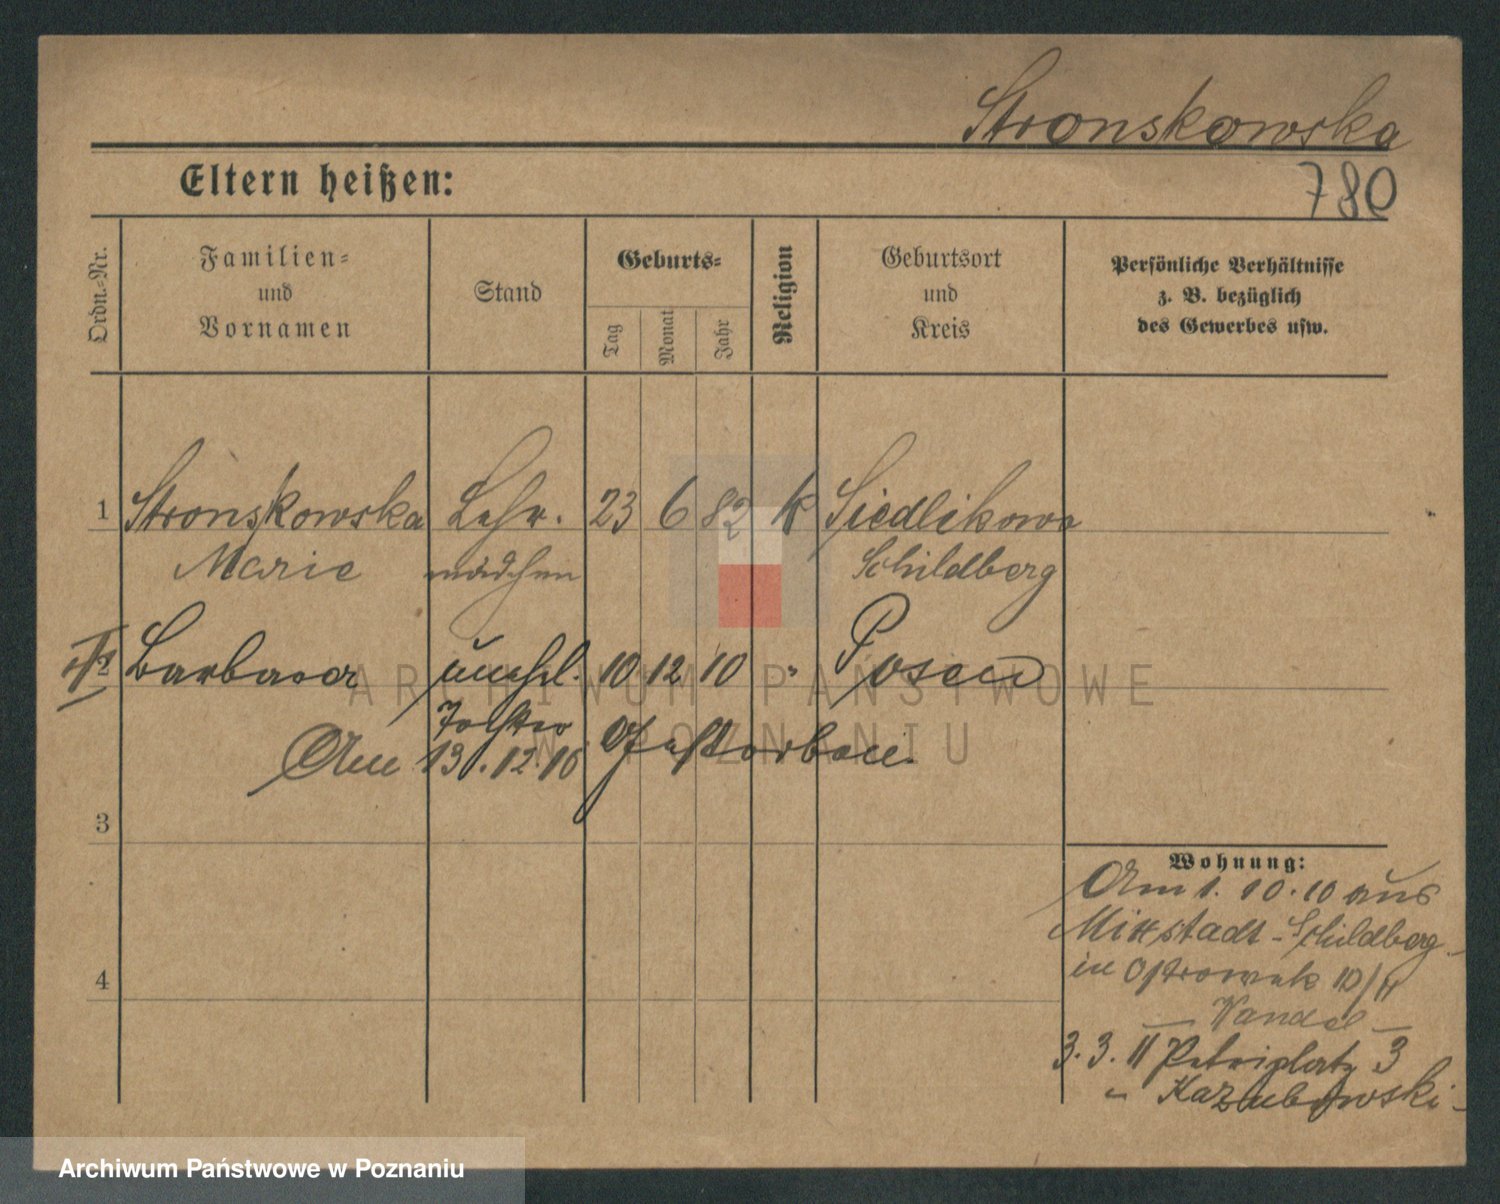 Stronskowska
780
Eltern heißen:
Ordn.-Nr.
Familien-
und
Vornamen
Stand
Geburts-
Tag
Monat
Jahr
Religion
Geburtsort
und
Kreis
Persönliche Verhältnisse
z. B. bezüglich
des Gewerbes usw.
1 Stronskowska Lehr. 23 6 82 k Siedlikowo
Marie mädchen Schildberg
2 Barbara unehl. 10 12 10 " Posen
Tochter
Am 13.12.10 Gestorben.
3
4
Wohnung:
Am 1. 10. 10 aus
Mixstadt - Schildberg
in Ostrowek
3. 3. 11 Petriplatz 3
" Kazubowski -
ARCHIWUM PAŃSTWOWE
W POZNANIU
Archiwum Państwowe w Poznaniu